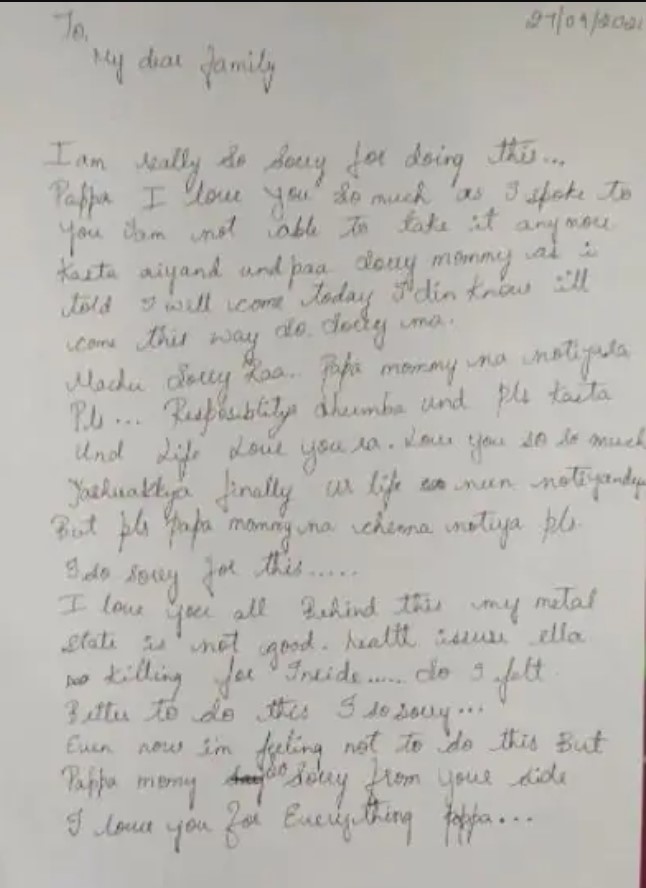 27/09/2021
To,
My dear family
I am really so sorry for doing this...
Pappa I love you so much as I spoke to
you I am not able to take it anymore
Kasta aiyand und paa sorry mommy as i
told I will come today I din know ill
come this way so sorry ma.
Machu Sorry Raa.. Papa mommy na
Pls... dhumba und pls kasta
Und Life Love you ra. Love you so so much
finally ur life nun
But pls papa mommy na chenna notiya pls.
I so sorry for this......
I love you all Behind this my metal
state is not good. health issuse ella
killing for Inside..... so I felt
Better to do this I so sorry...
Even now i'm feeling not to do this But
Pappa momy so Sorry from your side
I love you for Everything poppa...